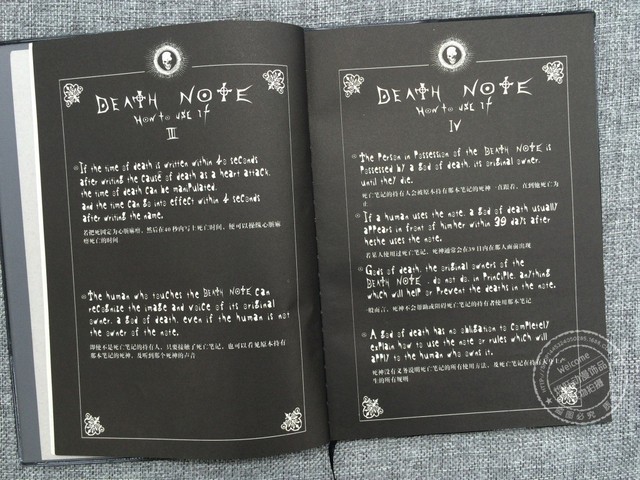 DEATH NOTE
HOW TO USE IT
III
If the time of death is written within 40 seconds
after writing the cause of death as a heart attack,
the time of death can be manipulated,
and the time can go into effect within 4 seconds
after writing the name.
若把死因定为心脏麻痹，然后在40秒内写上死亡时间，便可以操纵心脏麻
痹死亡的时间
The human who touches the DEATH NOTE can
recognize the image and voice of its original
owner, a god of death, even if the human is not
the owner of the note.
即使不是死亡笔记的持有人，只要接触了死亡笔记，也可以看见原本持有
那本笔记的死神，及听到那个死神的声音
DEATH NOTE
HOW TO USE IT
IV
The person in possession of the DEATH NOTE is
possessed by a god of death, its original owner,
until they die.
死亡笔记的持有人会被原本持有那本笔记的死神一直跟着，直到他死亡为
止
If a human uses the note, a god of death usually
appears in front of himher within 39 days after
heshe uses the note.
若某人使用过死亡笔记，死神通常会在39日内在那人面前出现
Gods of death, the original owners of the
DEATH NOTE, do not do, in principle, anything
which will help or prevent the deaths in the note.
一般而言，死神不会帮助或阻碍死亡笔记的持有者使用那本笔记
A god of death has no obligation to completely
explain how to use the note or rules which will
apply to the human who owns it.
死神没有义务说明死亡笔记的所有使用方法，及死亡笔记在持有人身上
生的所有规则
Welcome